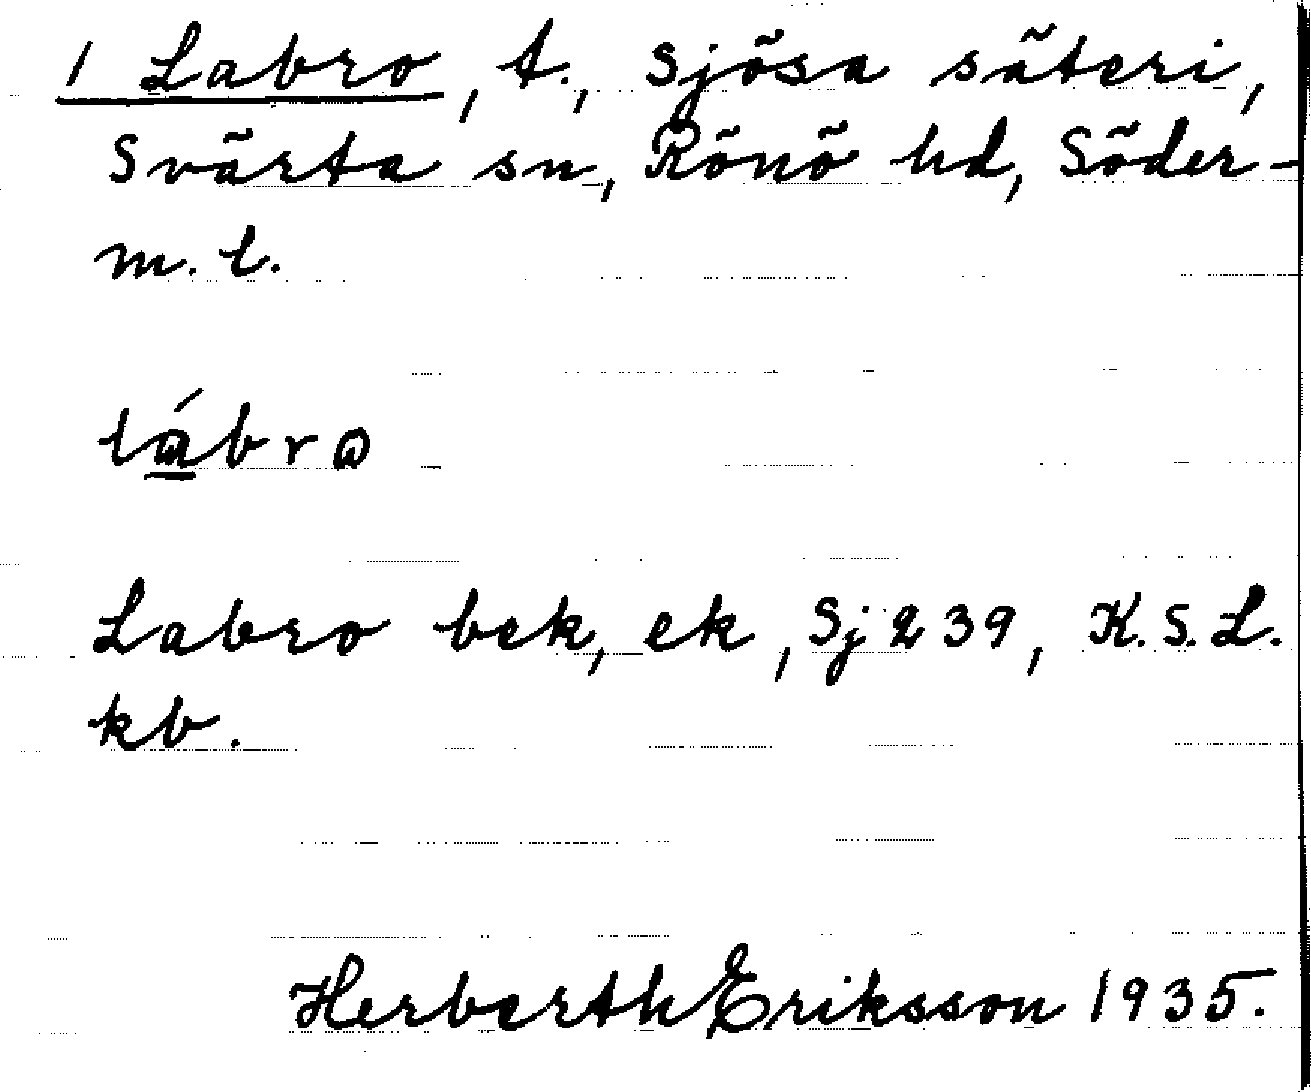 1 Labro, t., Sjösa säteri,
Svärta sn, Rönö hd, Söder-
m. l.
lábrω
Labro bek, ek, Sj 239, K.S.L.
kb.
Herberth Eriksson 1935.